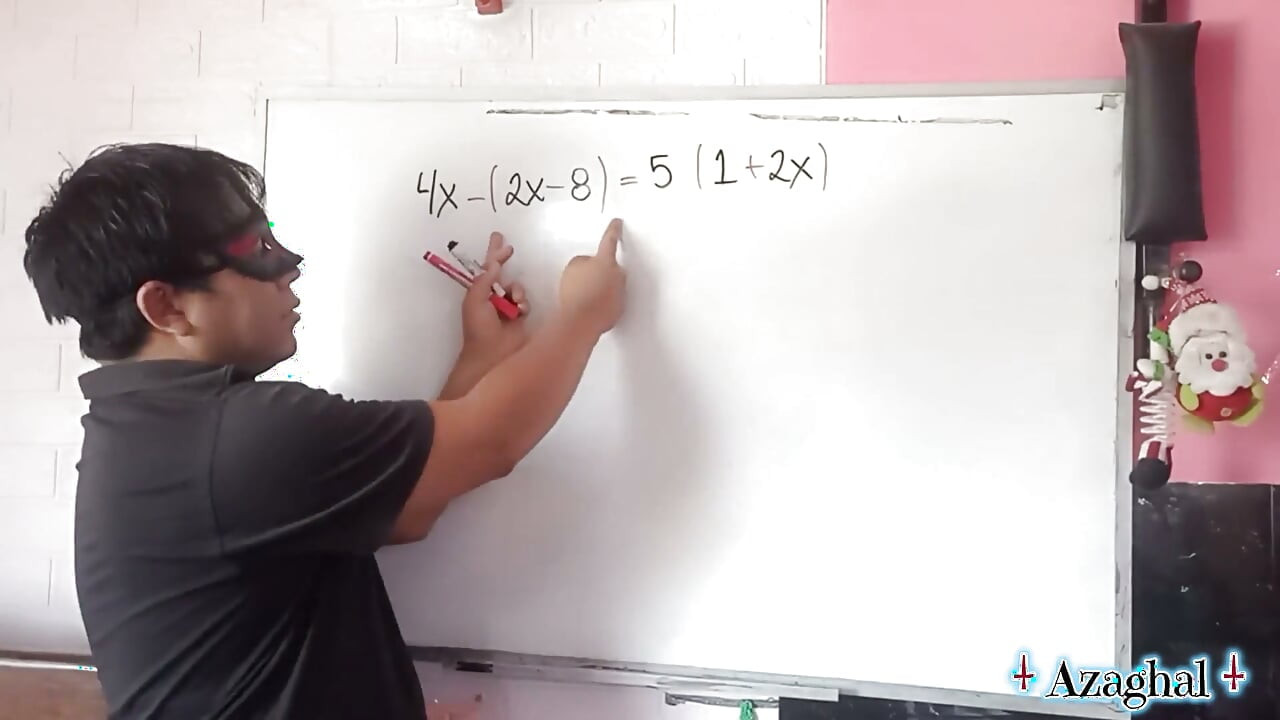 4x-(2x-8) = 5 (1+2x)
Azaghal